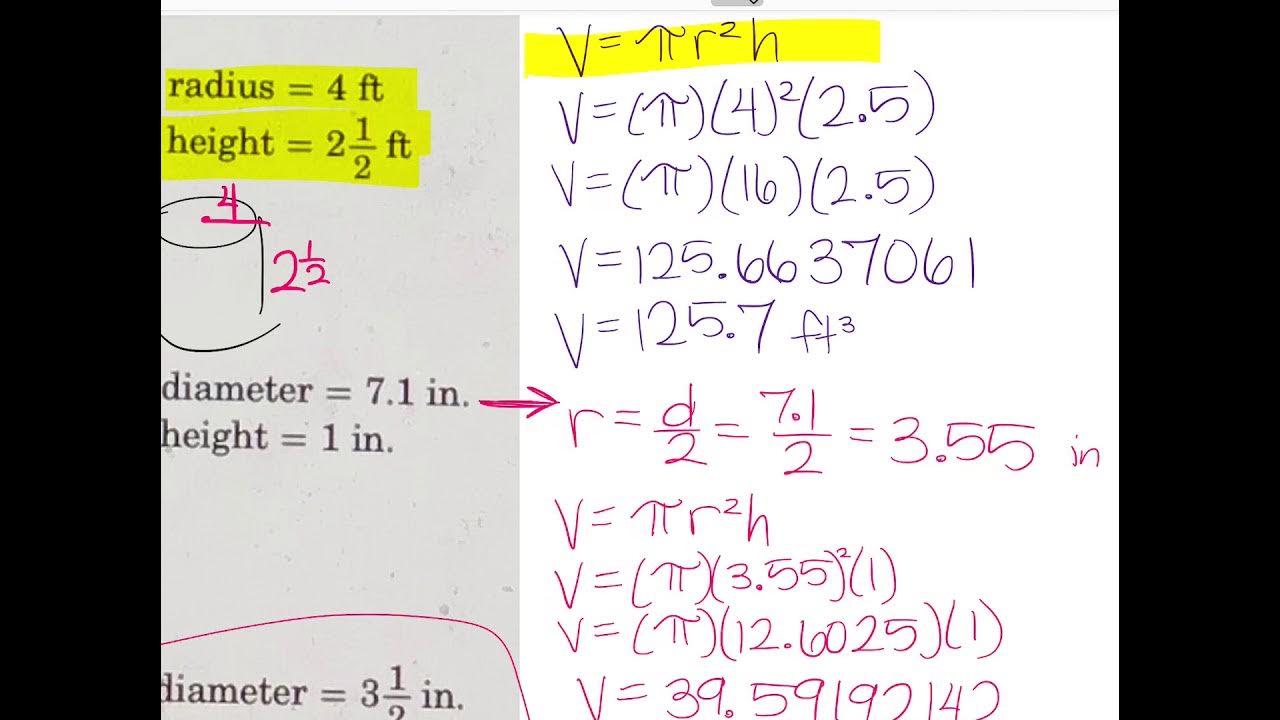 radius = 4 ft
height = 2 1/2 ft
4
2 1/2
diameter = 7.1 in.
height = 1 in.
diameter = 3 1/2 in.
V = πr²h
V = (π)(4)²(2.5)
V = (π)(16)(2.5)
V = 125.6637061
V = 125.7 ft³
r = d/2 = 7.1/2 = 3.55 in
V = πr²h
V = (π)(3.55)²(1)
V = (π)(12.6025)(1)
V = 39.59192142